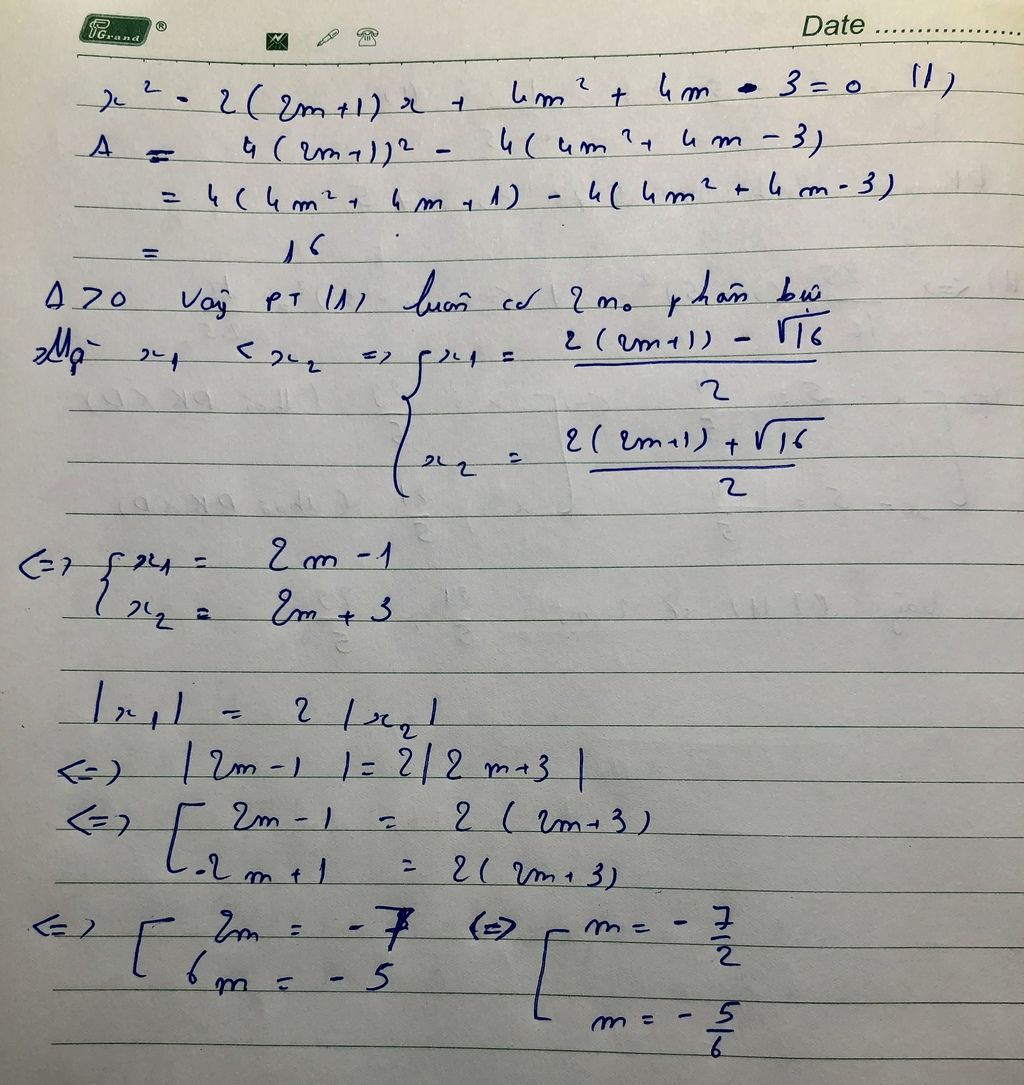 Grand ® Date
x² - 2(2m+1)x + 4m² + 4m - 3 = 0 (1)
Δ = 4(2m+1)² - 4(4m² + 4m - 3)
= 4(4m² + 4m + 1) - 4(4m² + 4m - 3)
= 16
Δ > 0 Vậy PT (1) luôn có 2 n₀ phân biệt
Mà x₁ < x₂ => { x₁ = (2(2m+1) - √16)/2
x₂ = (2(2m+1) + √16)/2
<=> { x₁ = 2m - 1
x₂ = 2m + 3
|x₁| = 2|x₂|
<=> |2m - 1| = 2|2m+3|
<=> [ 2m - 1 = 2(2m+3)
-2m + 1 = 2(2m+3)
<=> [ 2m = -7 <=> [ m = -7/2
6m = -5
m = -5/6